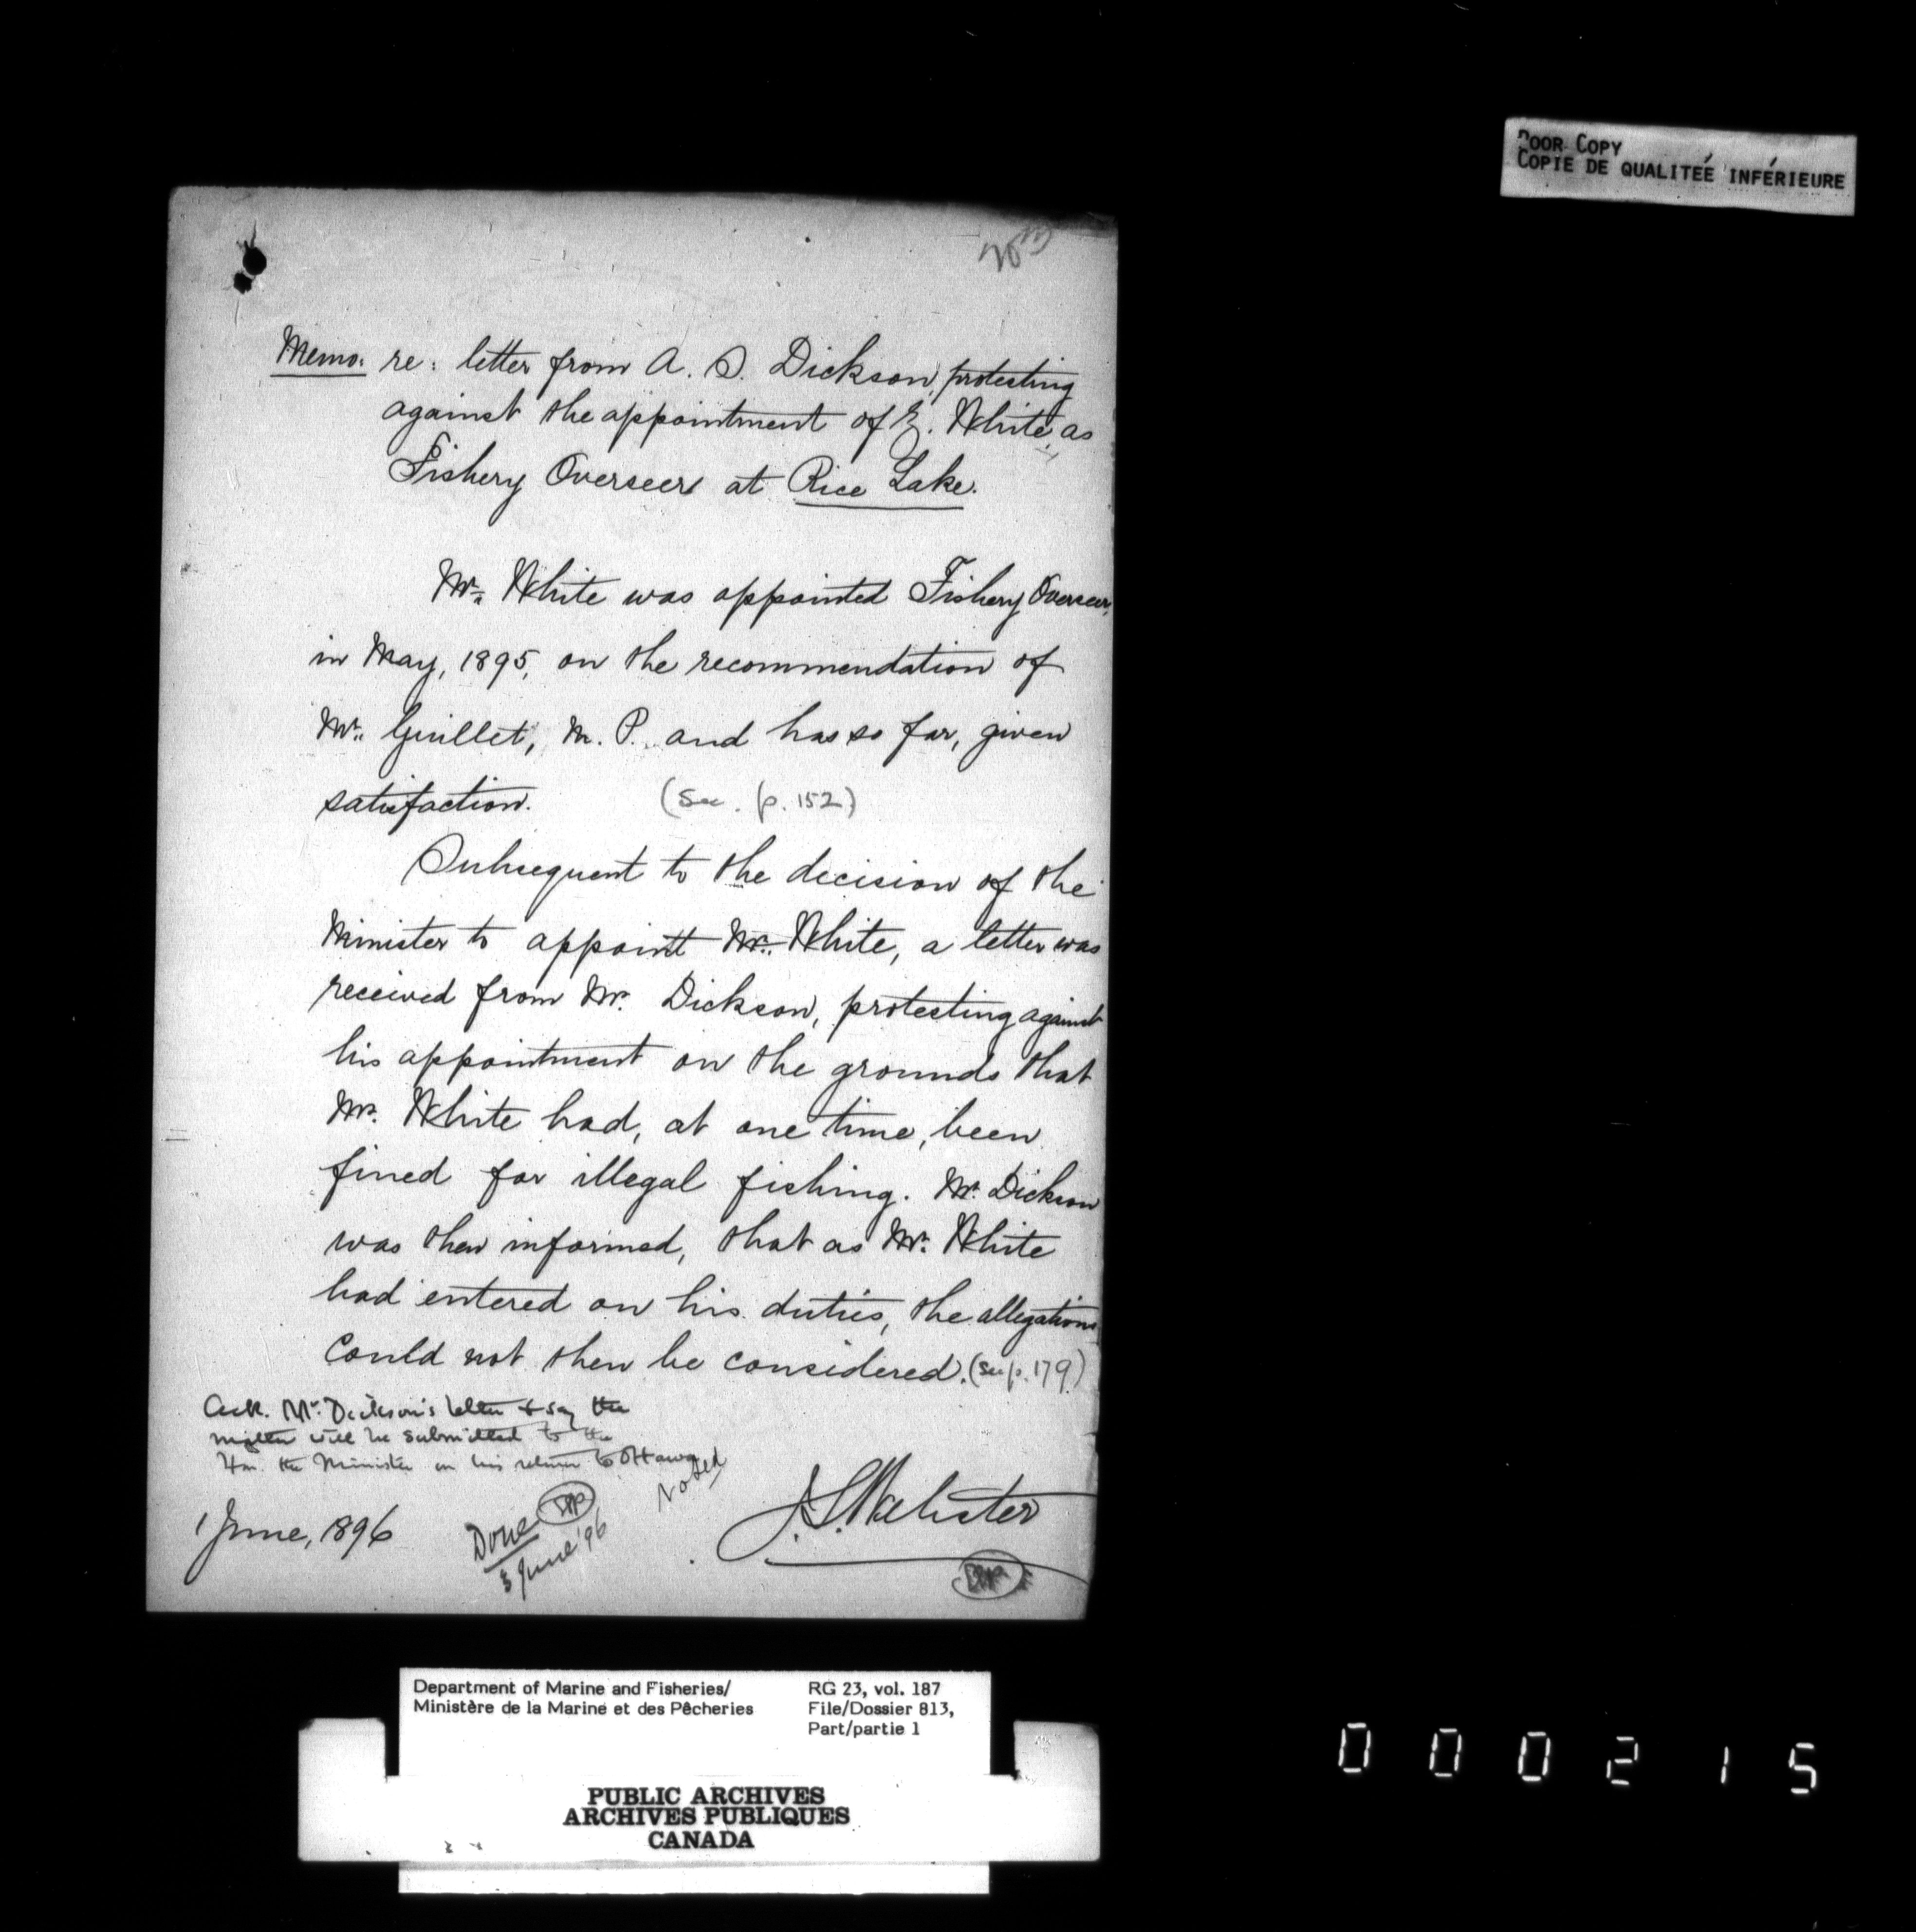 POOR COPY
COPIE DE QUALITEÉ INFÉRIEURE
Memo: re: letter from A. S. Dickson, protesting
against the appointment of E. White, as
Fishery Overseer at Rice Lake.
Mr. White was appointed Fishery Overseer,
in May, 1895, on the recommendation of
Mr. Guillet, M. P. and has so far, given
satisfaction. (See. p. 152)
Subsequent to the decision of the
Minister to appoint Mr. White, a letter was
received from Mr. Dickson, protesting against
his appointment on the grounds that
Mr. White had, at one time, been
fined for illegal fishing. Mr. Dickson
was then informed, that as Mr. White
had entered on his duties, the allegations
could not then be considered. (See p. 179)
Ack. Mr. Dickson's letter & say the
matter will be submitted to the
Hon. the Minister on his return to Ottawa
Noted
1 June, 1896
Done
3 June '96
J. S. Webster
Department of Marine and Fisheries/
Ministère de la Marine et des Pêcheries
RG 23, vol. 187
File/Dossier 813,
Part/partie 1
PUBLIC ARCHIVES
ARCHIVES PUBLIQUES
CANADA
0 0 0 2 1 5